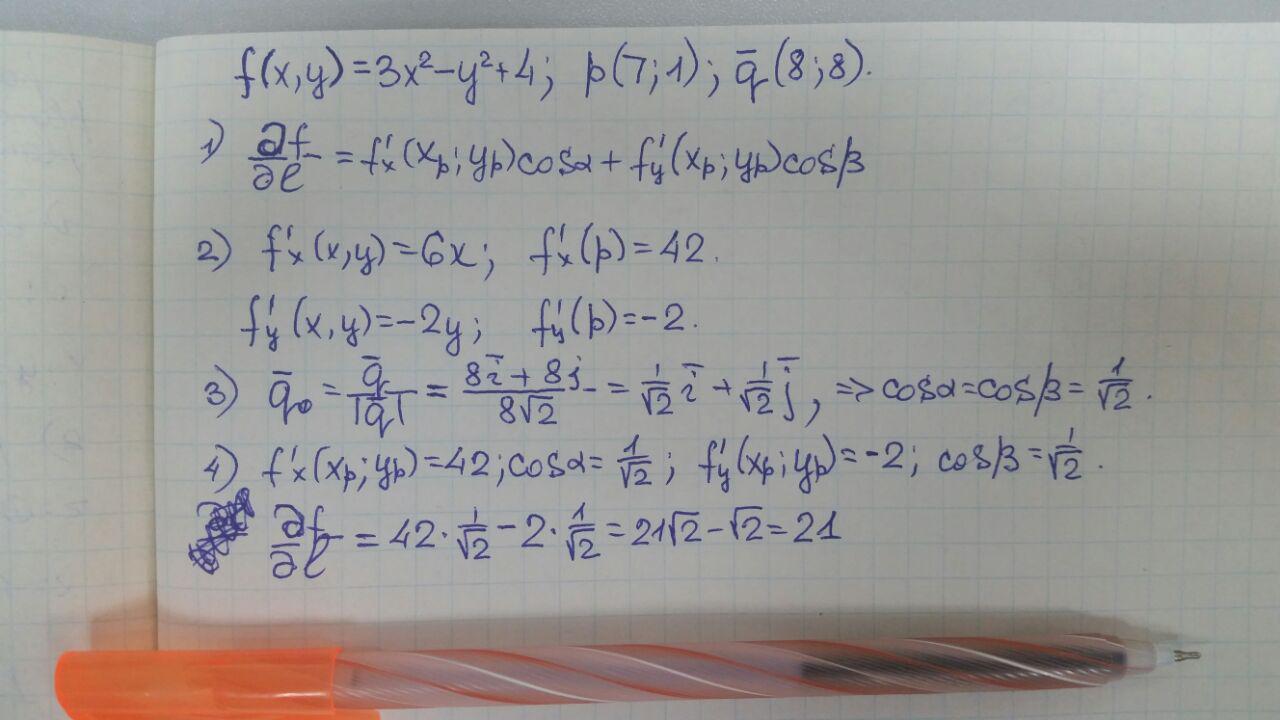 f(x,y)=3x²-y²+4; p(7;1); q̄(8;8).
1) ∂f/∂l = f'x(xp;yp)cosα + f'y(xp;yp)cosβ
2) f'x(x,y)=6x; f'x(p)=42.
f'y(x,y)=-2y; f'y(p)=-2.
3) q̄₀ = q̄/|q̄| = (8ī+8j)/(8√2) = 1/√2 ī + 1/√2 j̄, => cosα=cosβ= 1/√2.
4) f'x(xp;yp)=42; cosα= 1/√2; f'y(xp;yp)=-2; cosβ= 1/√2.
∂f/∂l = 42·1/√2 - 2·1/√2 = 21√2-√2=21